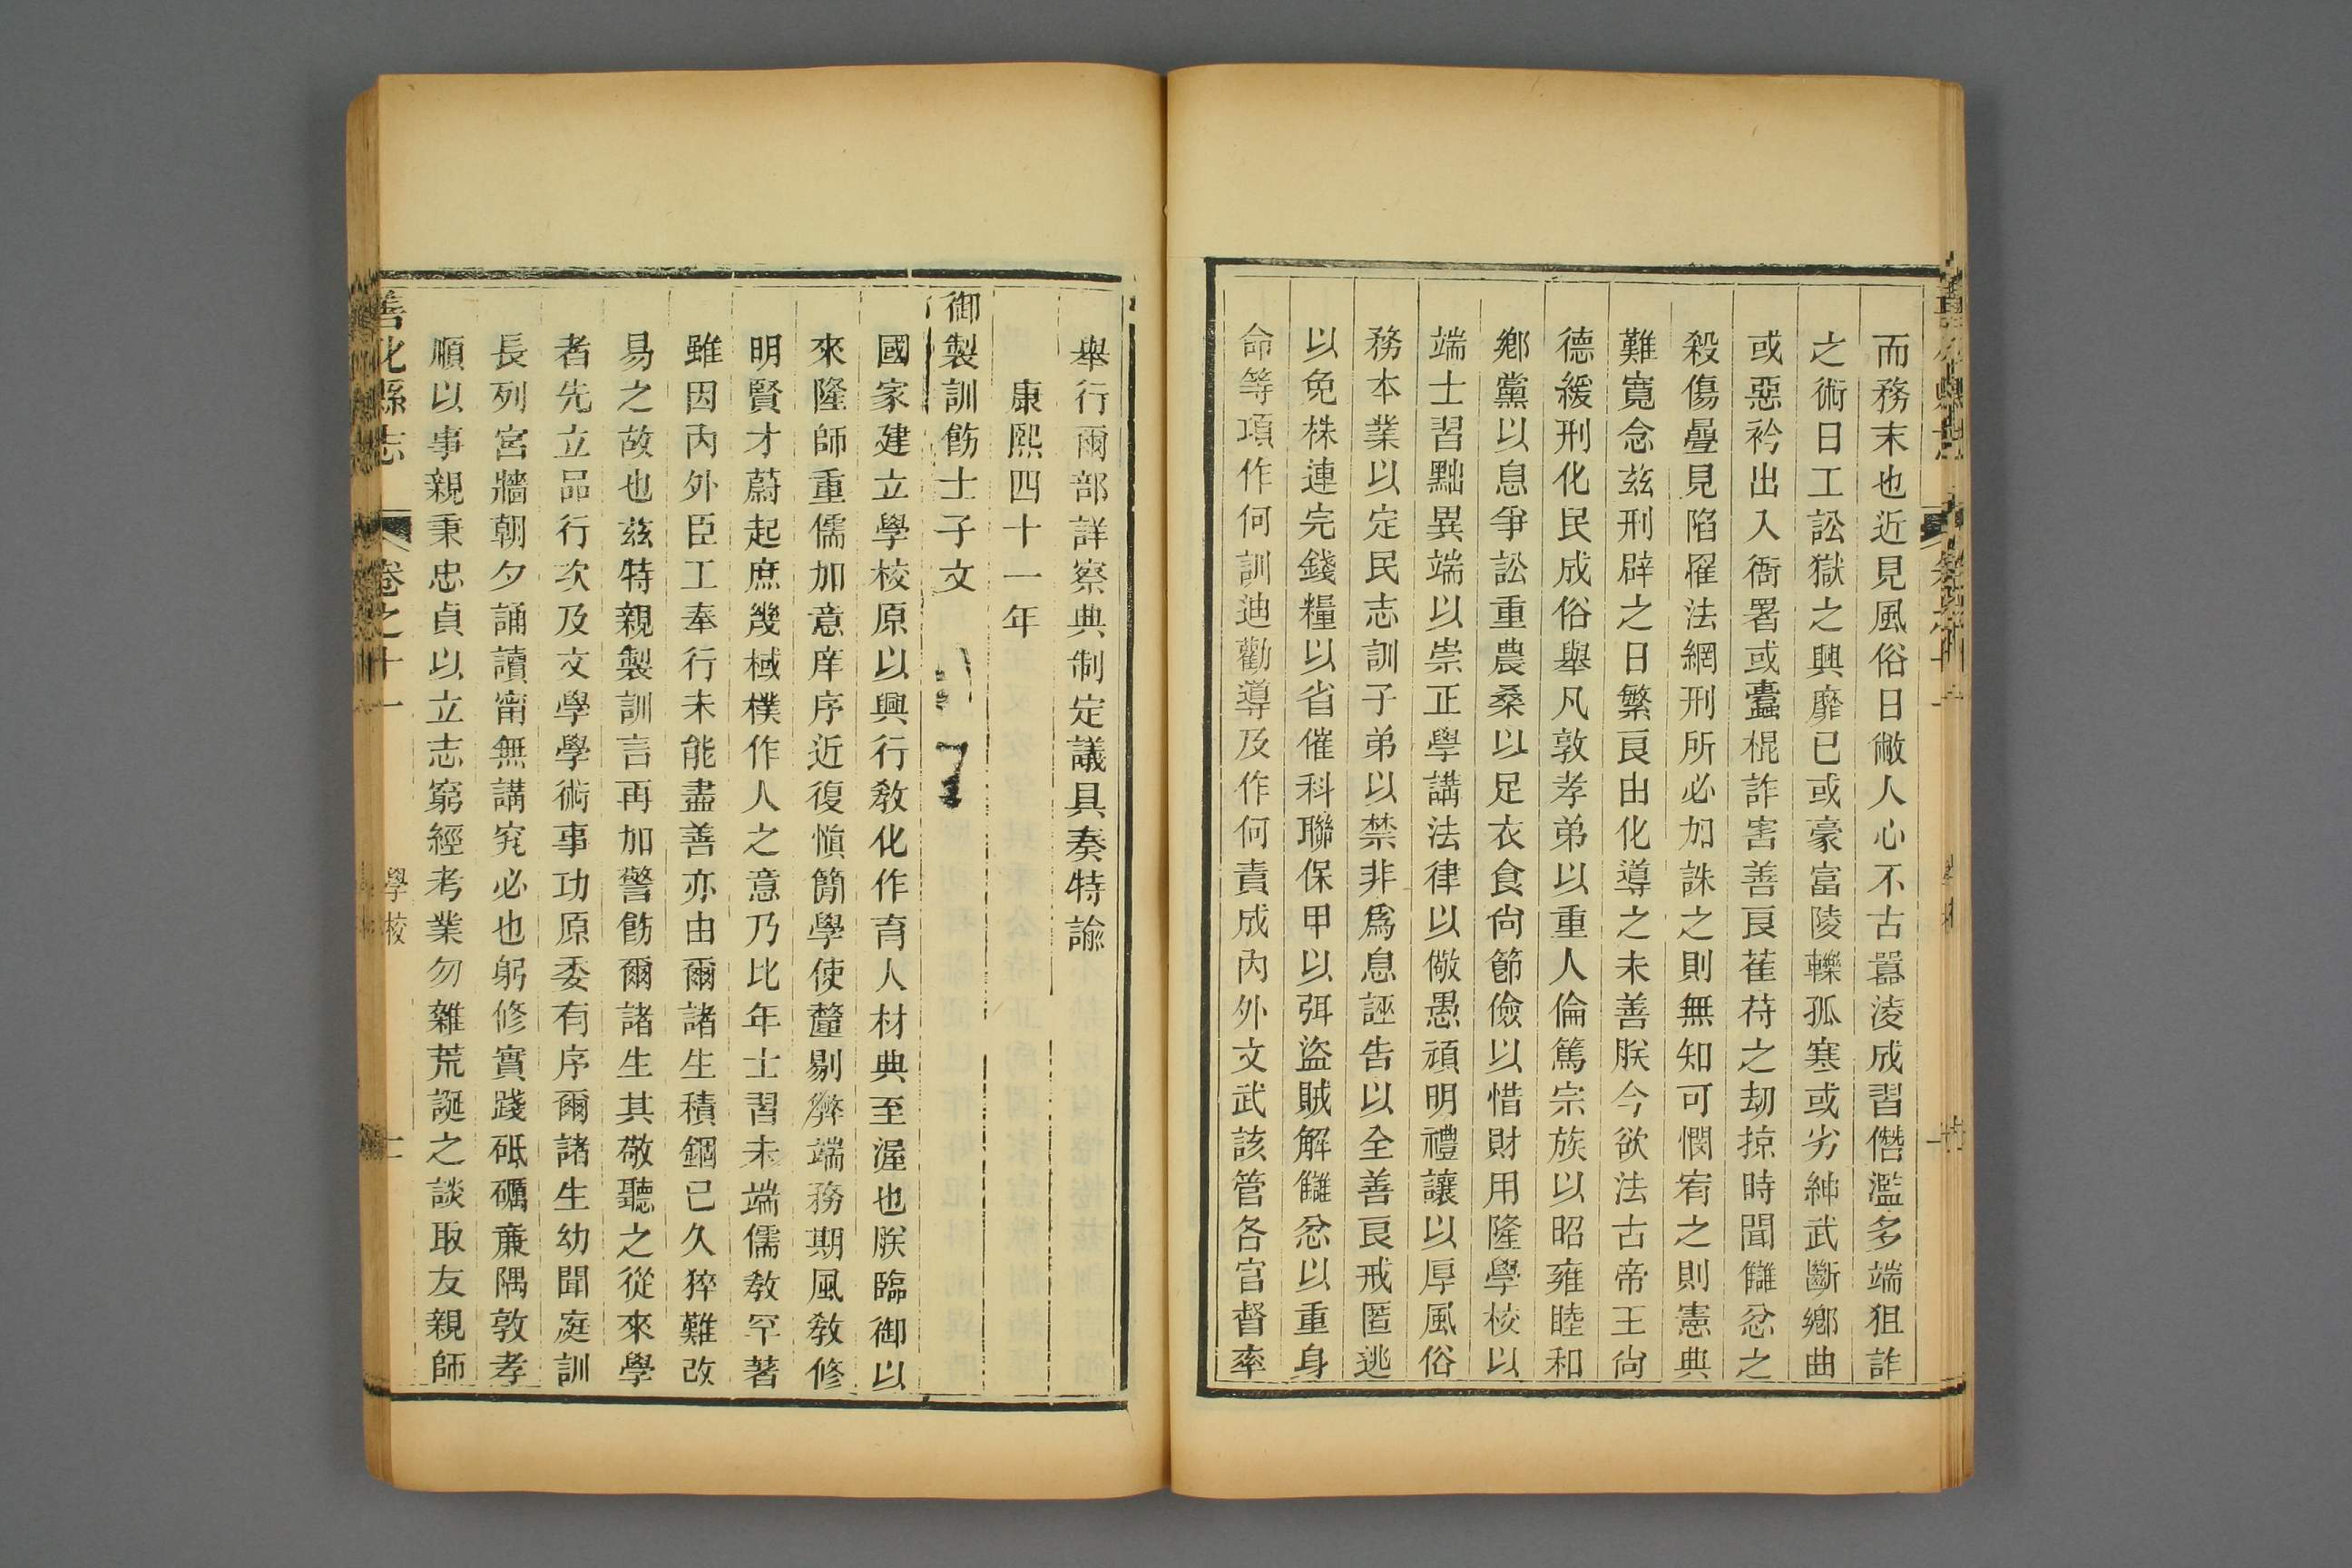 而務末也近見風俗日敝人心不古囂淩成習僭濫多端狙詐
之術日工訟獄之興靡已或豪富陵轢孤寒或劣紳武斷鄉曲
或惡衿出入衙署或蠹棍詐害善良萑苻之劫掠時聞讎忿之
殺傷疊見陷罹法網刑所必加誅之則無知可憫宥之則憲典
難寬念茲刑辟之日繁良由化導之未善朕今欲法古帝王尙
德緩刑化民成俗舉凡敦孝弟以重人倫篤宗族以昭雍睦和
鄉黨以息爭訟重農桑以足衣食尙節儉以惜財用隆學校以
端士習黜異端以崇正學講法律以儆愚頑明禮讓以厚風俗
務本業以定民志訓子弟以禁非爲息誣告以全善良戒匿逃
以免株連完錢糧以省催科聯保甲以弭盜賊解讎忿以重身
命等項作何訓迪勸導及作何責成內外文武該管各官督率
舉行爾部詳察典制定議具奏特諭
康熙四十一年
御製訓飭士子文
國家建立學校原以興行敎化作育人材典至渥也朕臨御以
來隆師重儒加意庠序近復愼簡學使釐剔弊端務期風敎修
明賢才蔚起庶幾棫樸作人之意乃比年士習未端儒敎罕著
雖因內外臣工奉行未能盡善亦由爾諸生積錮已久猝難改
易之故也茲特親製訓言再加警飭爾諸生其敬聽之從來學
者先立品行次及文學學術事功原委有序爾諸生幼聞庭訓
長列宮牆朝夕誦讀甯無講究必也躬修實踐砥礪廉隅敦孝
順以事親秉忠貞以立志窮經考業勿雜荒誕之談取友親師
善化縣志 卷之十一 學校